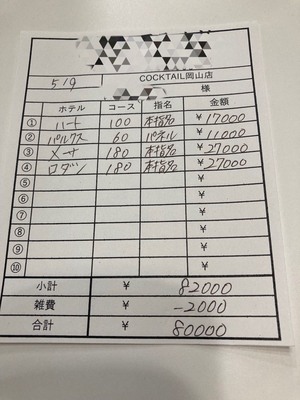 COCKTAIL岡山店
519 様
ホテル コース 指名 金額
① ハート 100 本指名 ¥17000
② パルクス 60 パネル ¥11000
③ メサ 180 本指名 ¥27000
④ ロダン 180 本指名 ¥27000
⑤ ¥
⑥ ¥
⑦ ¥
⑧ ¥
⑨ ¥
⑩ ¥
小計 ¥ 82000
雑費 ¥ -2000
合計 ¥ 80000